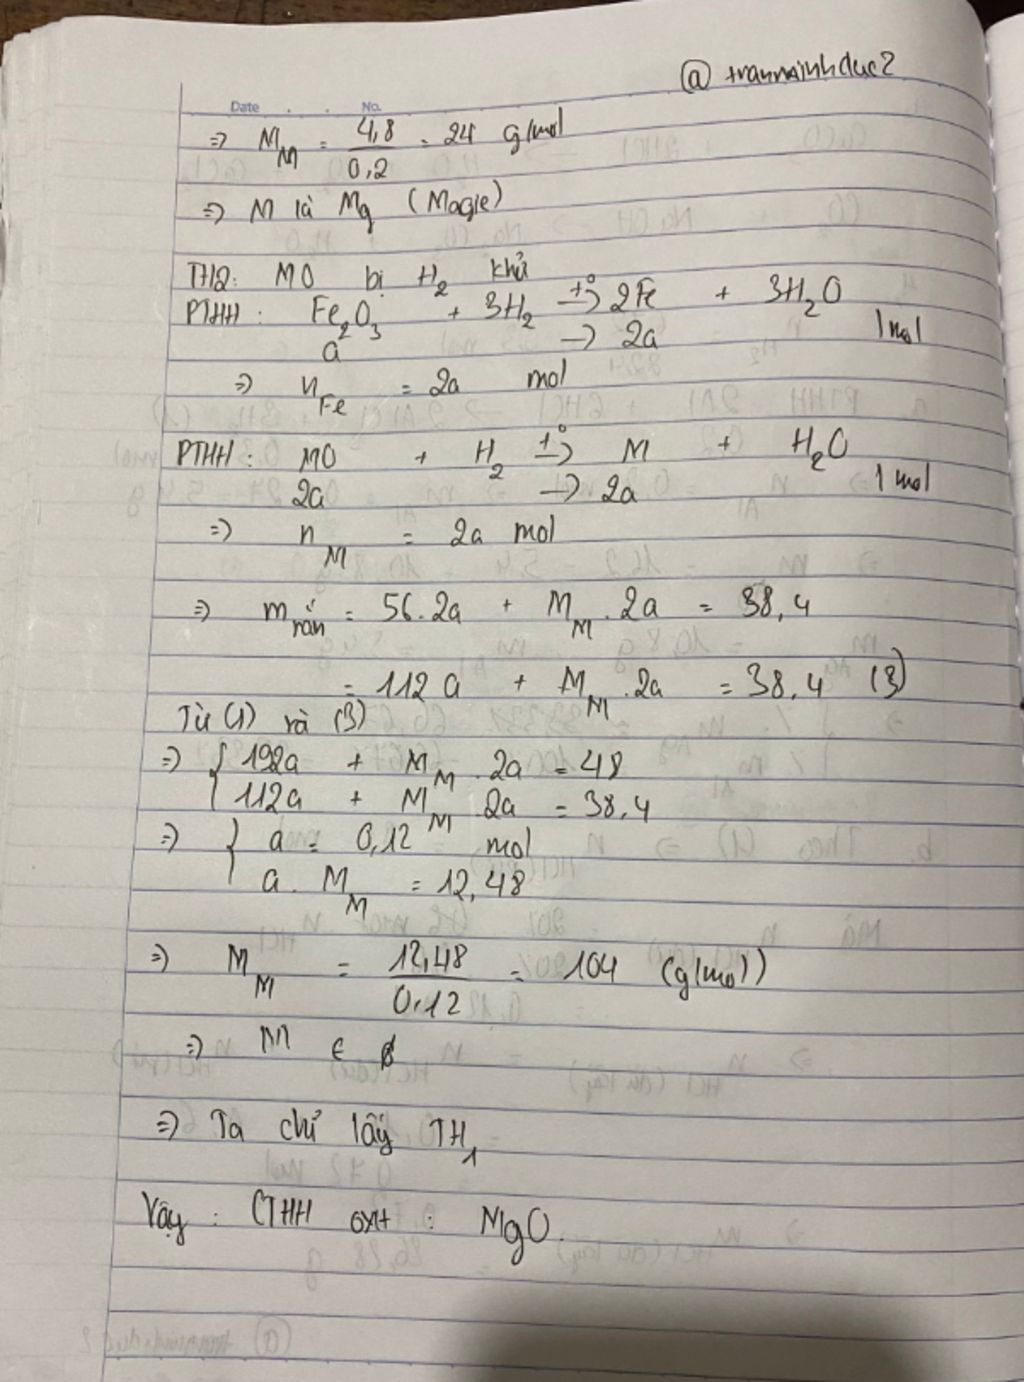 @ tranminhduc2
Date . . . No.
=> M_M = 4,8/0,2 = 24 g/mol
=> M là Mg (Magie)
TH2: MO bị H₂ khử
PTHH: Fe₂O₃ + 3H₂ -t°-> 2Fe + 3H₂O
a -> 2a | mol
=> n_Fe = 2a mol
PTHH: MO + H₂ -t°-> M + H₂O
2a -> 2a | mol
=> n_M = 2a mol
=> m_rắn = 56.2a + M_M.2a = 38,4
= 112a + M_M.2a = 38,4 (3)
Từ (1) và (3)
=> { 192a + M_M.2a = 48
{ 112a + M_M.2a = 38,4
=> { a = 0,12 mol
{ a.M_M = 12,48
=> M_M = 12,48/0,12 = 104 (g/mol)
=> M ∈ ∅
=> Ta chỉ lấy TH₁
Vậy: CTHH oxit: MgO.